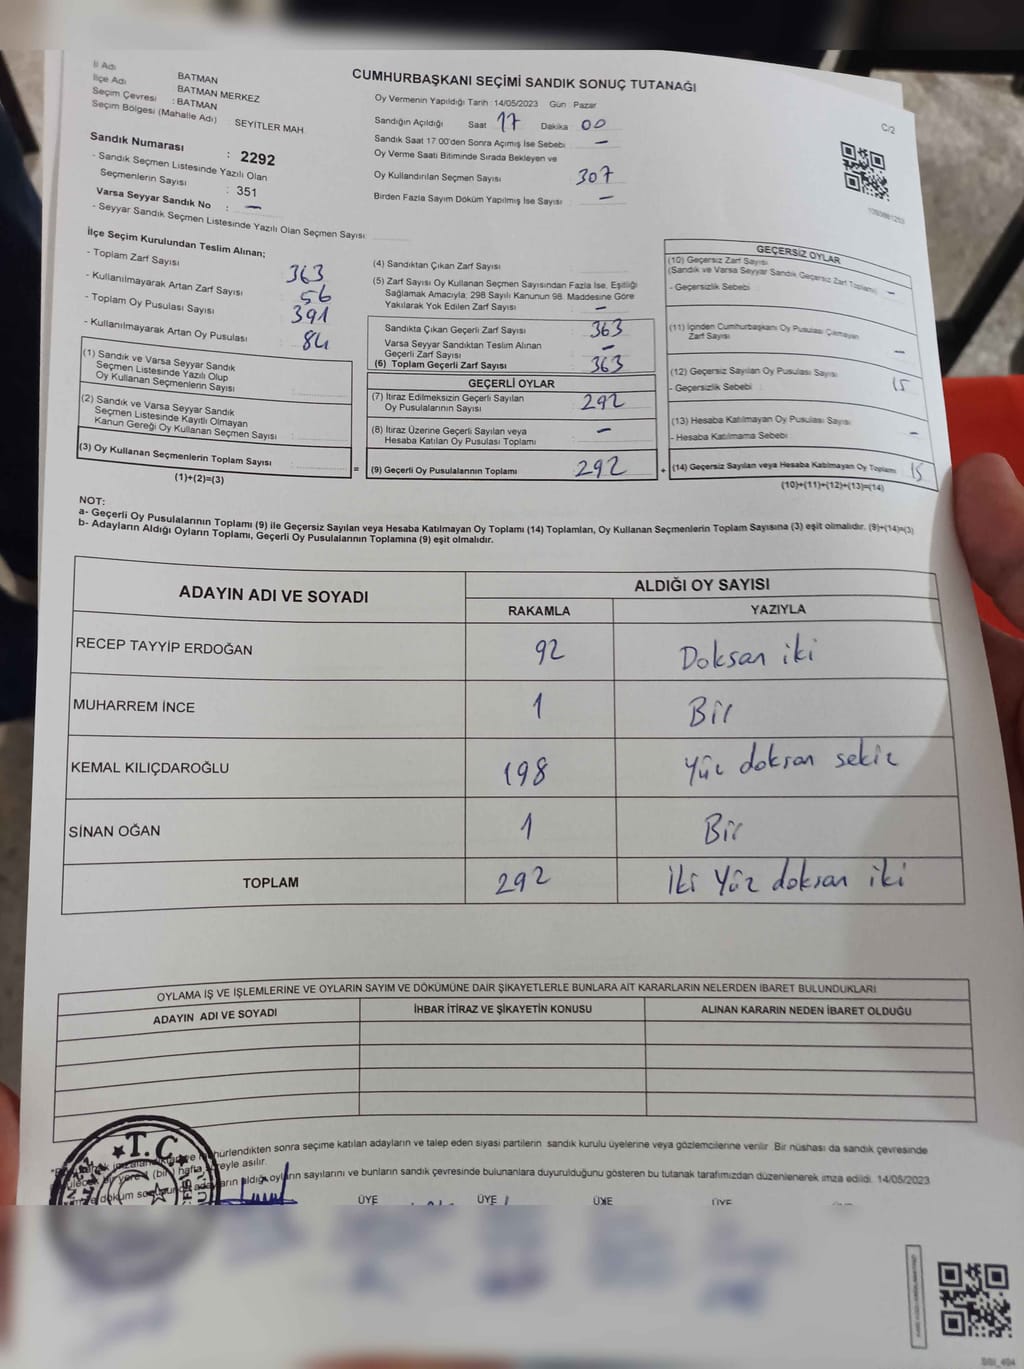 CUMHURBAŞKANI SEÇİMİ SANDIK SONUÇ TUTANAĞI
C/2
İl Adı BATMAN
İlçe Adı BATMAN MERKEZ
Seçim Çevresi : BATMAN
Seçim Bölgesi (Mahalle Adı) SEYİTLER MAH.
Sandık Numarası : 2292
- Sandık Seçmen Listesinde Yazılı Olan
Seçmenlerin Sayısı : 351
Varsa Seyyar Sandık No : —
- Seyyar Sandık Seçmen Listesinde Yazılı Olan Seçmen Sayısı:
Oy Vermenin Yapıldığı Tarih :14/05/2023 Gün : Pazar
Sandığın Açıldığı Saat 17 Dakika 00
Sandık Saat 17:00'den Sonra Açımış İse Sebebi : —
Oy Verme Saati Bitiminde Sırada Bekleyen ve
Oy Kullandırılan Seçmen Sayısı 307
Birden Fazla Sayım Döküm Yapılmış İse Sayısı : —
İlçe Seçim Kurulundan Teslim Alınan;
- Toplam Zarf Sayısı 363
- Kullanılmayarak Artan Zarf Sayısı 56
- Toplam Oy Pusulası Sayısı 391
- Kullanılmayarak Artan Oy Pusulası 84
(1) Sandık ve Varsa Seyyar Sandık
Seçmen Listesinde Yazılı Olup
Oy Kullanan Seçmenlerin Sayısı :
(2) Sandık ve Varsa Seyyar Sandık
Seçmen Listesinde Kayıtlı Olmayan
Kanun Gereği Oy Kullanan Seçmen Sayısı :
(3) Oy Kullanan Seçmenlerin Toplam Sayısı :
(1)+(2)=(3)
(4) Sandıktan Çıkan Zarf Sayısı :
(5) Zarf Sayısı Oy Kullanan Seçmen Sayısından Fazla İse, Eşitliği
Sağlamak Amacıyla; 298 Sayılı Kanunun 98. Maddesine Göre
Yakılarak Yok Edilen Zarf Sayısı : —
Sandıkta Çıkan Geçerli Zarf Sayısı : 363
Varsa Seyyar Sandıktan Teslim Alınan
Geçerli Zarf Sayısı : —
(6) Toplam Geçerli Zarf Sayısı : 363
GEÇERLİ OYLAR
(7) İtiraz Edilmeksizin Geçerli Sayılan
Oy Pusulalarının Sayısı : 292
(8) İtiraz Üzerine Geçerli Sayılan veya
Hesaba Katılan Oy Pusulası Toplamı : —
= (9) Geçerli Oy Pusulalarının Toplamı : 292
GEÇERSİZ OYLAR
(10) Geçersiz Zarf Sayısı
(Sandık ve Varsa Seyyar Sandık Geçersiz Zarf Toplamı) —
- Geçersizlik Sebebi :
(11) İçinden Cumhurbaşkanı Oy Pusulası Çıkmayan
Zarf Sayısı —
(12) Geçersiz Sayılan Oy Pusulası Sayısı 15
- Geçersizlik Sebebi :
(13) Hesaba Katılmayan Oy Pusulası Sayısı —
- Hesaba Katılmama Sebebi
+ (14) Geçersiz Sayılan veya Hesaba Katılmayan Oy Toplamı 15
(10)+(11)+(12)+(13)=(14)
NOT:
a- Geçerli Oy Pusulalarının Toplamı (9) ile Geçersiz Sayılan veya Hesaba Katılmayan Oy Toplamı (14) Toplamları, Oy Kullanan Seçmenlerin Toplam Sayısına (3) eşit olmalıdır. (9)+(14)=(3)
b- Adayların Aldığı Oyların Toplamı, Geçerli Oy Pusulalarının Toplamına (9) eşit olmalıdır.
ADAYIN ADI VE SOYADI ALDIĞI OY SAYISI
RAKAMLA YAZIYLA
RECEP TAYYİP ERDOĞAN 92 Doksan iki
MUHARREM İNCE 1 Bir
KEMAL KILIÇDAROĞLU 198 Yüz doksan sekiz
SİNAN OĞAN 1 Bir
TOPLAM 292 İki Yüz doksan iki
OYLAMA İŞ VE İŞLEMLERİNE VE OYLARIN SAYIM VE DÖKÜMÜNE DAİR ŞİKAYETLERLE BUNLARA AİT KARARLARIN NELERDEN İBARET BULUNDUKLARI
ADAYIN ADI VE SOYADI İHBAR İTİRAZ VE ŞİKAYETİN KONUSU ALINAN KARARIN NEDEN İBARET OLDUĞU
T.C.
sonra seçime katılan adayların ve talep eden siyasi partilerin sandık kurulu üyelerine veya gözlemcilerine verilir. Bir nüshası da sandık çevresinde
(bir) hafta süreyle asılır.
aldığı oyların sayılarını ve bunların sandık çevresinde bulunanlara duyurulduğunu gösteren bu tutanak tarafımızdan düzenlenerek imza edildi. 14/05/2023
ÜYE ÜYE ÜYE ÜYE